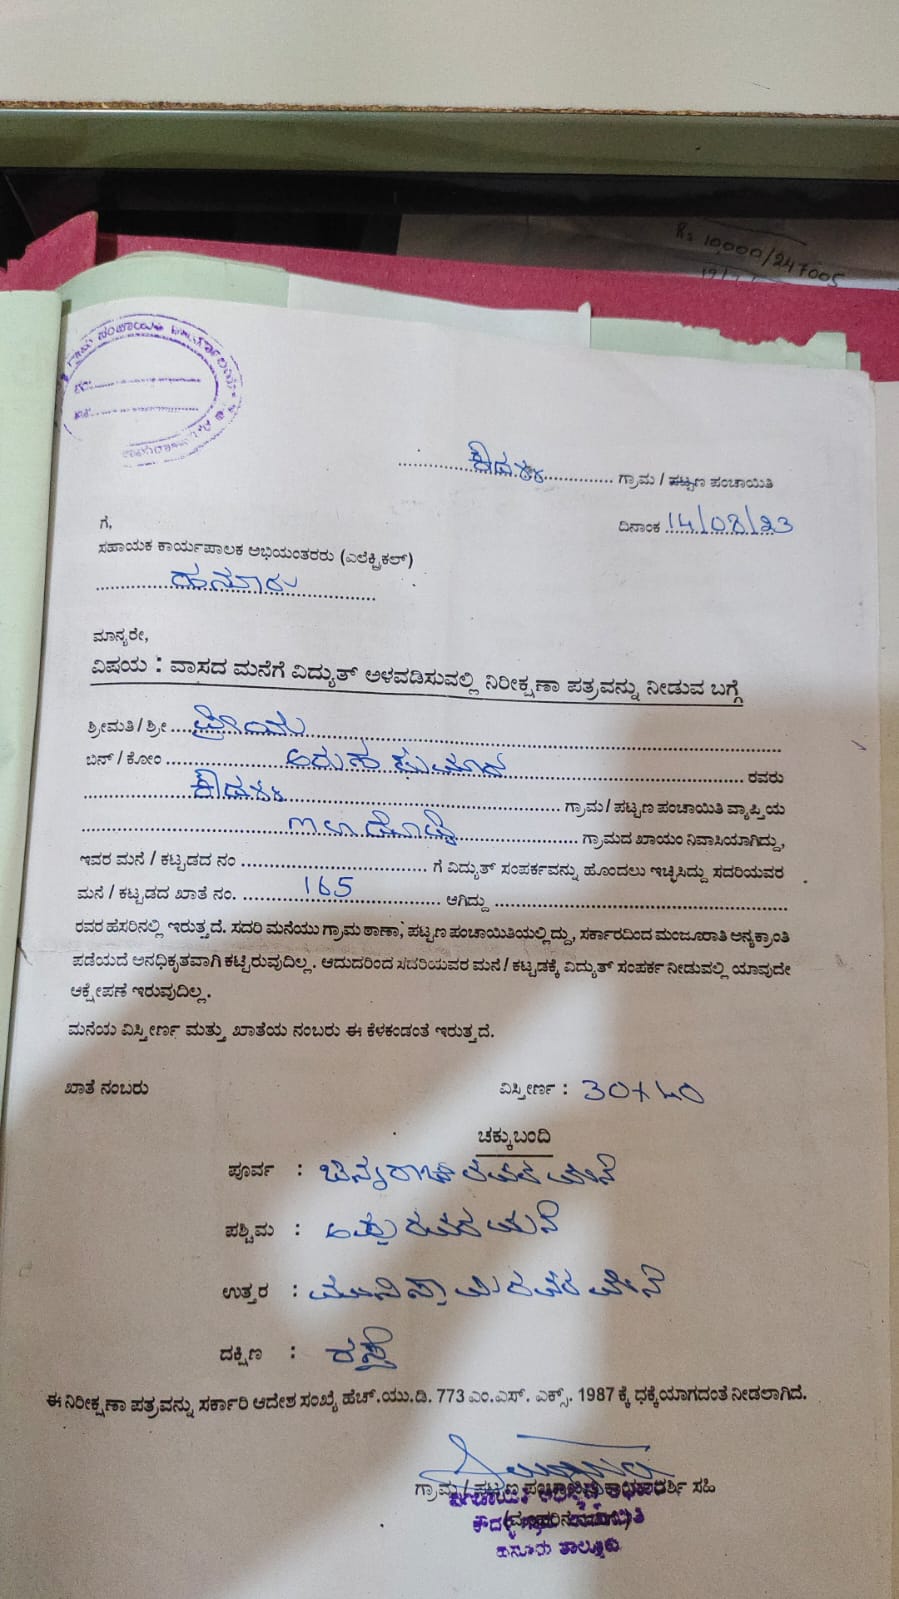 Rs 10,000/247005
ಗ್ರಾಮ ಪಂಚಾಯಿತಿ ಕಾರ್ಯಾಲಯ
ಕೌದಳ್ಳಿ ಗ್ರಾಮ / ಪಟ್ಟಣ ಪಂಚಾಯಿತಿ
ಗೆ,
ದಿನಾಂಕ 14/08/23
ಸಹಾಯಕ ಕಾರ್ಯಪಾಲಕ ಅಭಿಯಂತರರು (ಎಲೆಕ್ಟ್ರಿಕಲ್)
ಹನೂರು
ಮಾನ್ಯರೇ,
ವಿಷಯ : ವಾಸದ ಮನೆಗೆ ವಿದ್ಯುತ್ ಅಳವಡಿಸುವಲ್ಲಿ ನಿರೀಕ್ಷಣಾ ಪತ್ರವನ್ನು ನೀಡುವ ಬಗ್ಗೆ
ಶ್ರೀಮತಿ / ಶ್ರೀ
ಬಿನ್ / ಕೋಂ ಅರುಣ ಕುಮಾರ ರವರು
ಕೌದಳ್ಳಿ ಗ್ರಾಮ / ಪಟ್ಟಣ ಪಂಚಾಯಿತಿ ವ್ಯಾಪ್ತಿಯ
ಗ್ರಾಮದ ಖಾಯಂ ನಿವಾಸಿಯಾಗಿದ್ದು,
ಇವರ ಮನೆ / ಕಟ್ಟಡದ ನಂ ಗೆ ವಿದ್ಯುತ್ ಸಂಪರ್ಕವನ್ನು ಹೊಂದಲು ಇಚ್ಛಿಸಿದ್ದು ಸದರಿಯವರ
ಮನೆ / ಕಟ್ಟಡದ ಖಾತೆ ನಂ. 165 ಆಗಿದ್ದು
ರವರ ಹೆಸರಿನಲ್ಲಿ ಇರುತ್ತದೆ. ಸದರಿ ಮನೆಯು ಗ್ರಾಮ ಠಾಣಾ, ಪಟ್ಟಣ ಪಂಚಾಯಿತಿಯಲ್ಲಿದ್ದು, ಸರ್ಕಾರದಿಂದ ಮಂಜೂರಾತಿ ಅನ್ಯಕ್ರಾಂತಿ
ಪಡೆಯದೆ ಅನಧಿಕೃತವಾಗಿ ಕಟ್ಟಿರುವುದಿಲ್ಲ. ಆದುದರಿಂದ ಸದರಿಯವರ ಮನೆ / ಕಟ್ಟಡಕ್ಕೆ ವಿದ್ಯುತ್ ಸಂಪರ್ಕ ನೀಡುವಲ್ಲಿ ಯಾವುದೇ
ಆಕ್ಷೇಪಣೆ ಇರುವುದಿಲ್ಲ.
ಮನೆಯ ವಿಸ್ತೀರ್ಣ ಮತ್ತು ಖಾತೆಯ ನಂಬರು ಈ ಕೆಳಕಂಡಂತೆ ಇರುತ್ತದೆ.
ಖಾತೆ ನಂಬರು ವಿಸ್ತೀರ್ಣ : 30x40
ಚಕ್ಕುಬಂದಿ
ಪೂರ್ವ : ಚಿನ್ನರಾಜ್ ರವರ ಮನೆ
ಪಶ್ಚಿಮ : ರವರ ಮನೆ
ಉತ್ತರ : ಮುನಿಸ್ವಾಮಿ ರವರ ಮನೆ
ದಕ್ಷಿಣ : ರಸ್ತೆ
ಈ ನಿರೀಕ್ಷಣಾ ಪತ್ರವನ್ನು ಸರ್ಕಾರಿ ಆದೇಶ ಸಂಖ್ಯೆ ಹೆಚ್.ಯು.ಡಿ. 773 ಎಂ.ಎಸ್. ಎಕ್ಸ್. 1987 ಕ್ಕೆ ಧಕ್ಕೆಯಾಗದಂತೆ ನೀಡಲಾಗಿದೆ.
ಗ್ರಾಮ / ಪಟ್ಟಣ ಪಂಚಾಯಿತಿ ಕಾರ್ಯದರ್ಶಿ ಸಹಿ
ಹನೂರು ತಾಲ್ಲೂಕು